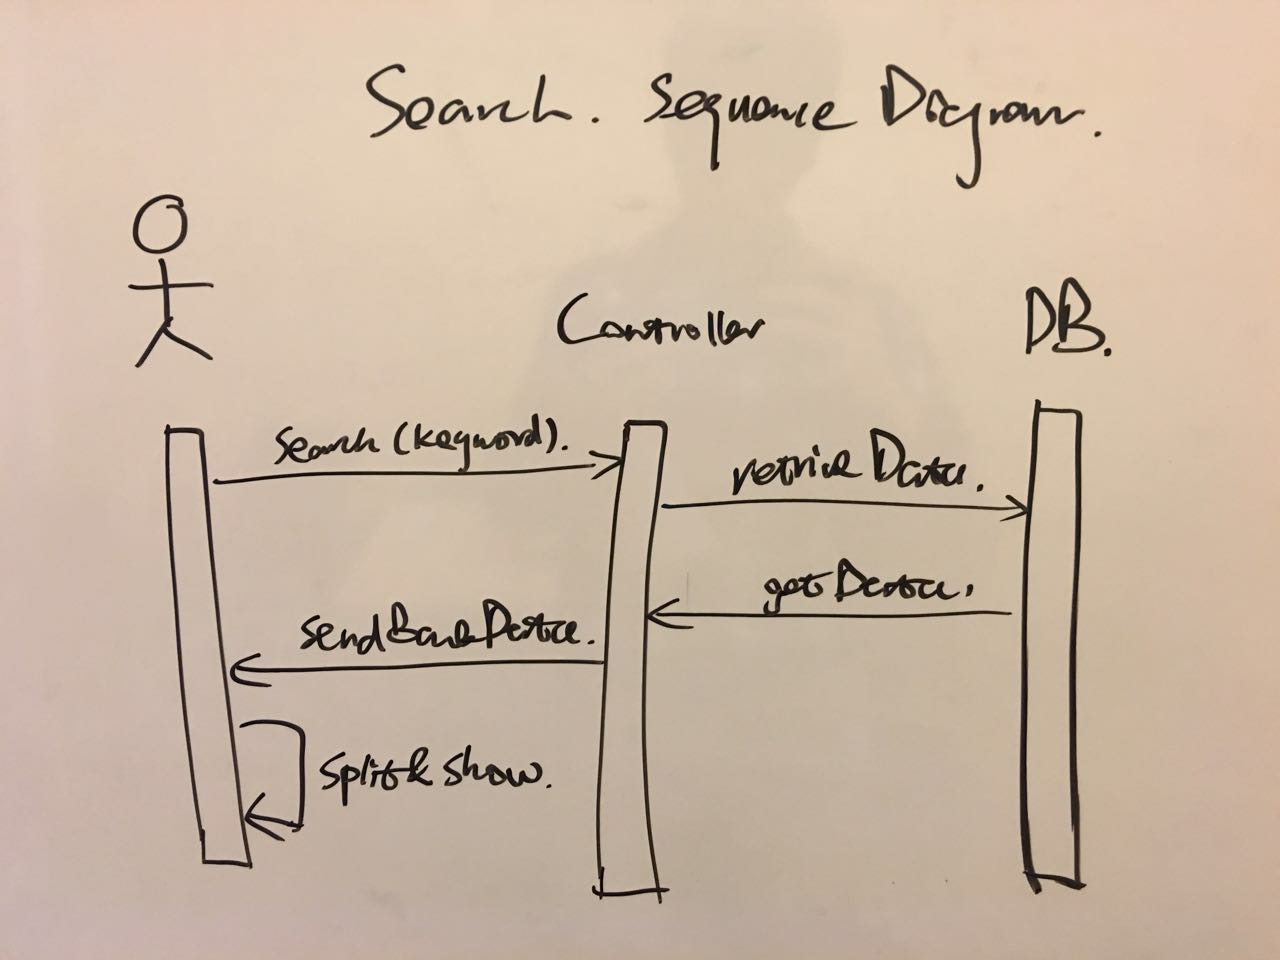 Search. Sequence Diagram.
Controller
DB.
Search (keyword).
retrive Data.
get Data.
sendBackData.
split & show.